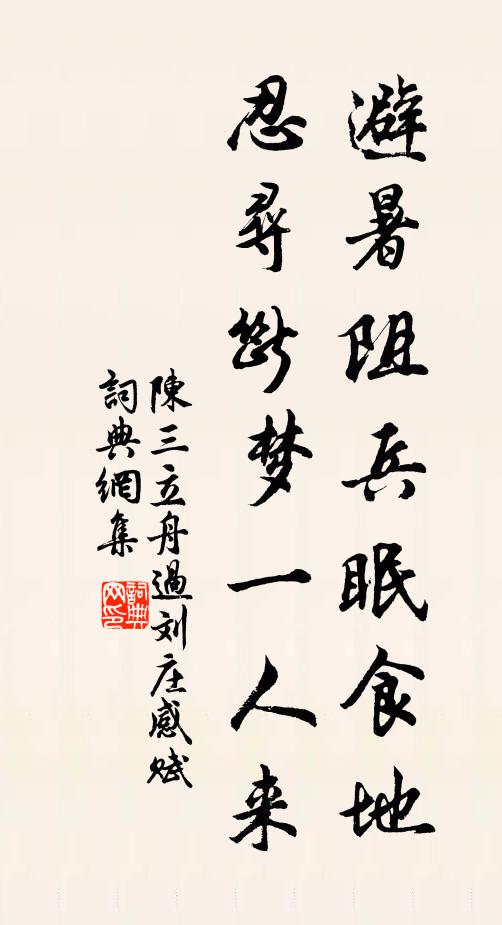 避暑阻兵眠食地
忍尋断梦一人来
陳三立舟過刘庄感赋
詞典網集
詞典网印